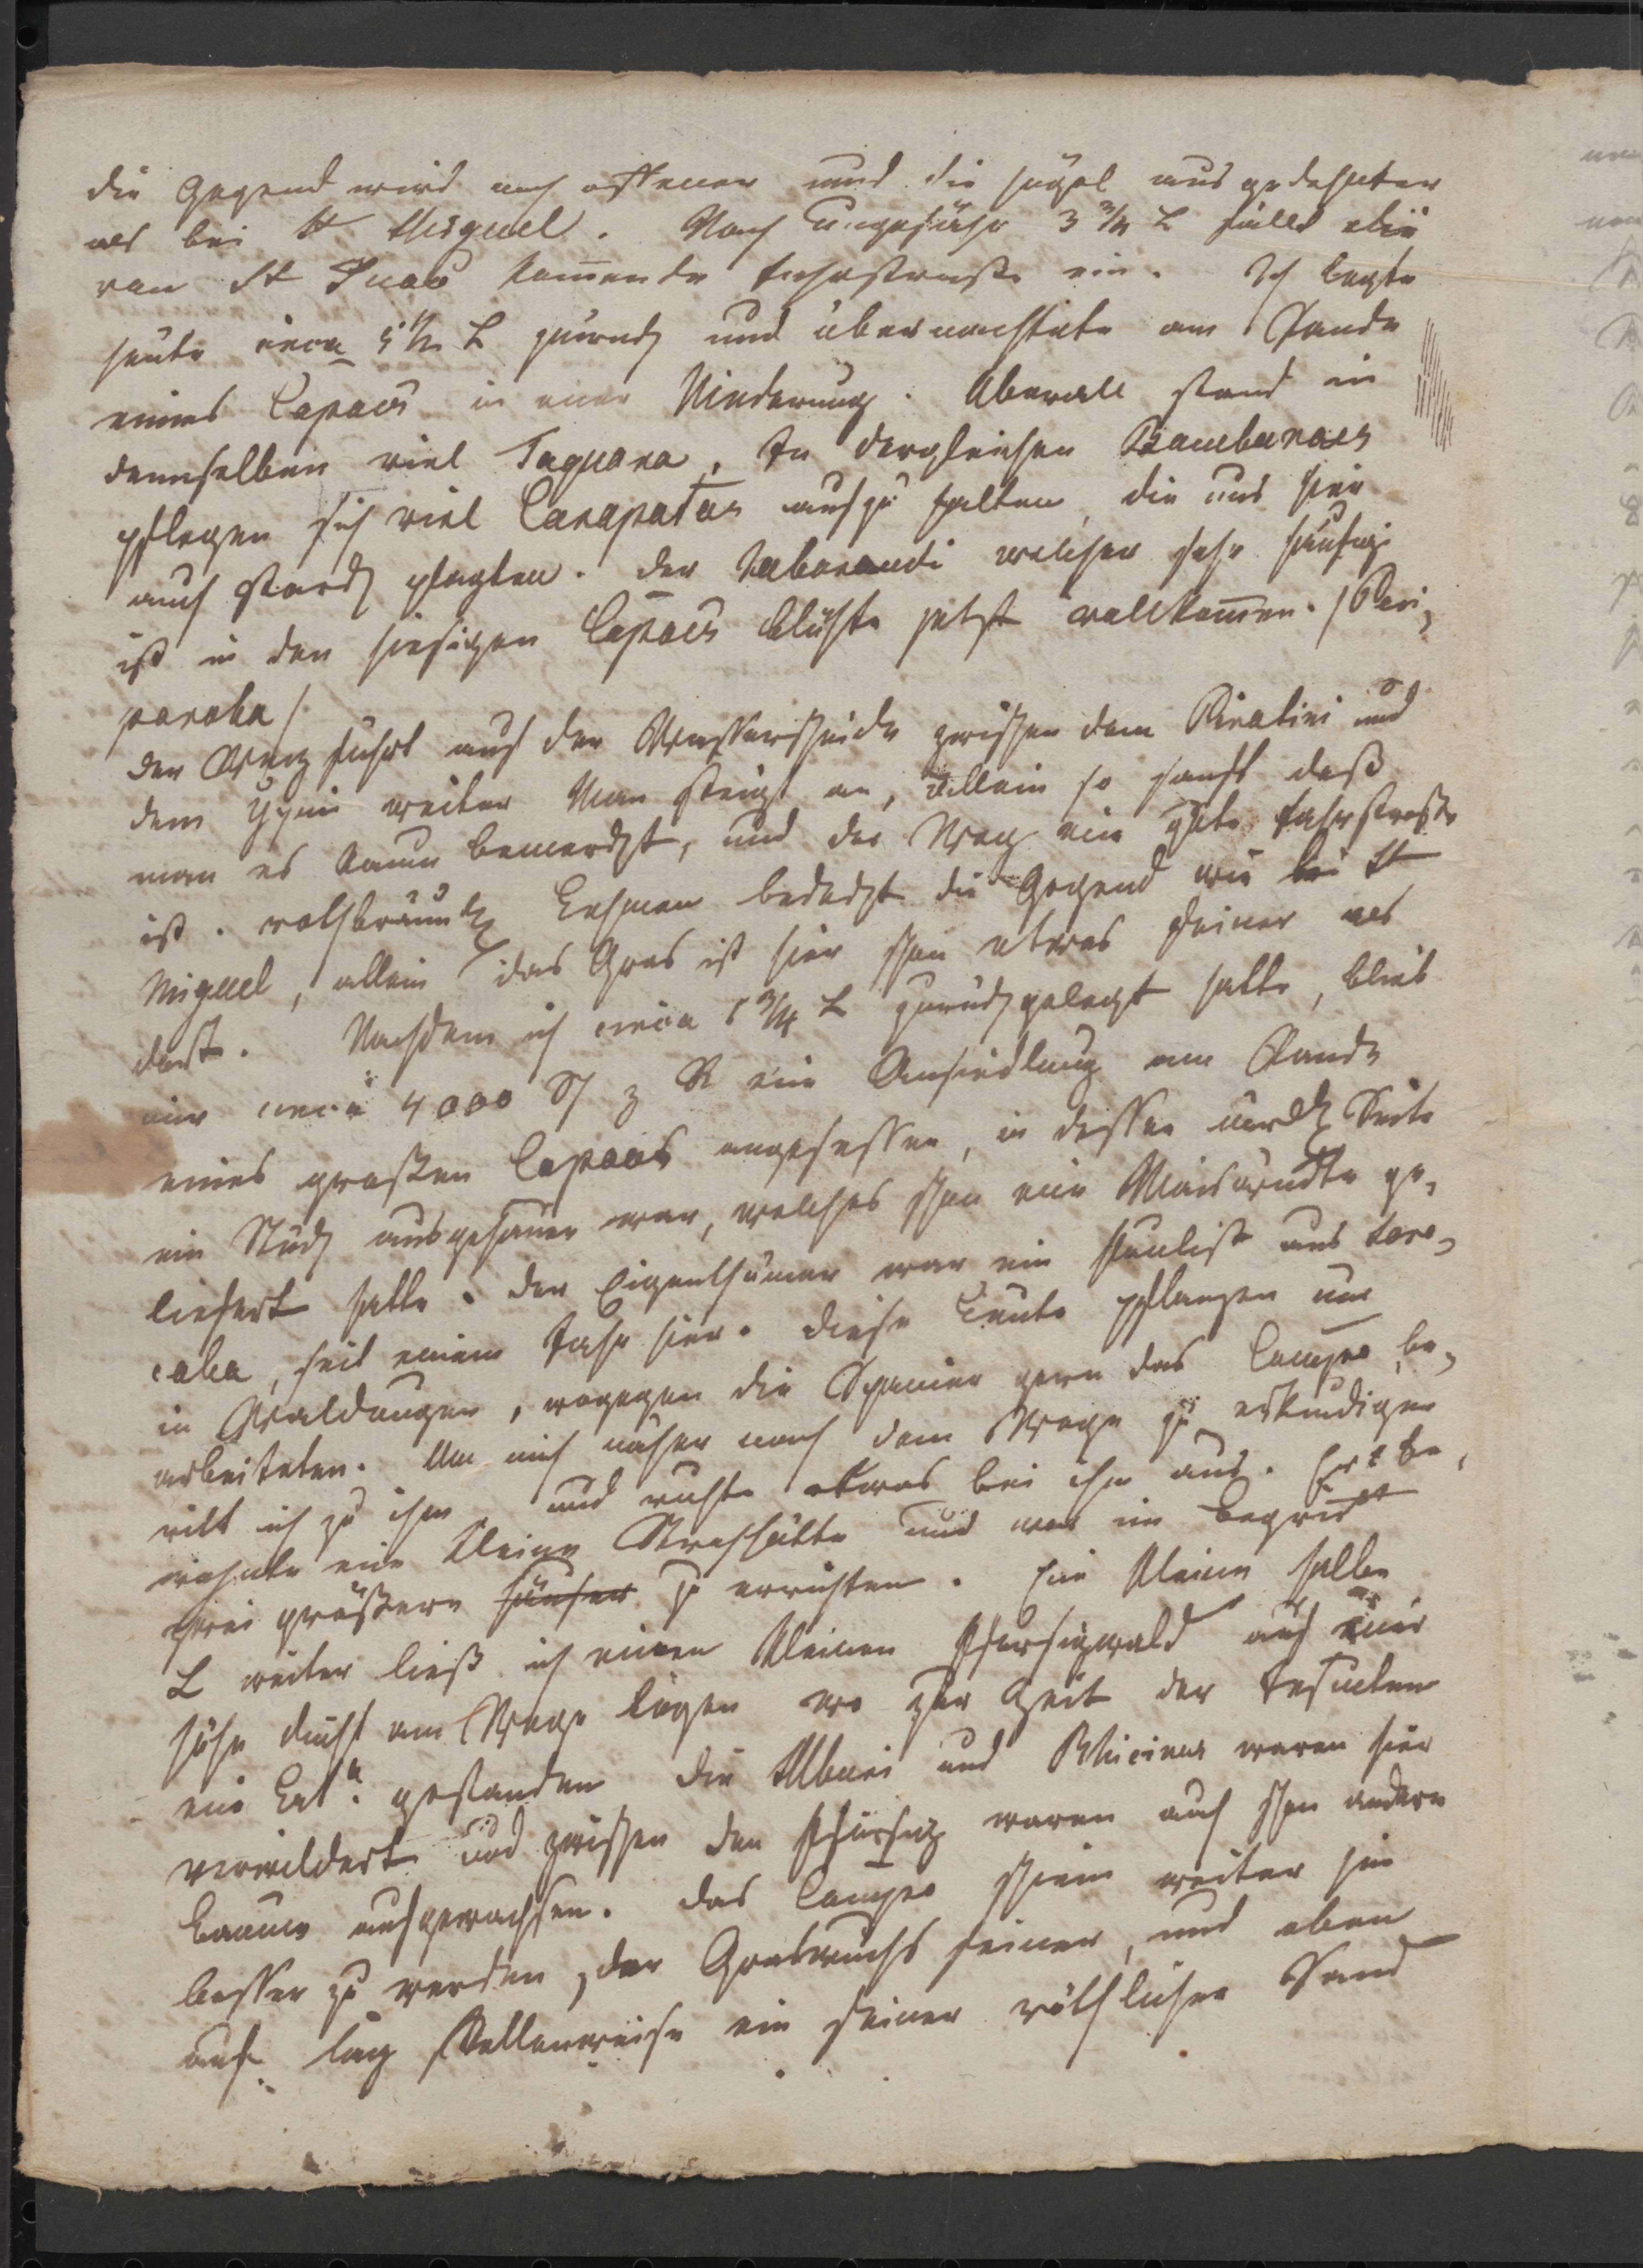 die Gegend wird noch offener und die Hügel ausgedehnter
als bei St Miguel. Nach ungefähr 3 3/4 L fällt die
von St Juao kom̄ende Fahrstraße ein. Ich legte
heute circa 5 1/2 L zurück und übernachtete am Rande
eines Capaos in einer Niederung. Überall stand in
demselben viel Taquara, In dergleichen Bambusaes
pflegen sich viel Carapatas aufzuhalten, die uns hier
auch starck plagten. Der Jaborandi welcher sehr häufig
ist in den hiesigen Capaos blühte jetzt vollkom̄en. /Peri-
paroba/
Der Weg führt auf der Wasserscheide zwischen dem Piratini und
dem Yjui weiter Man steigt an, allein so sanft daß
man es kaum bemerckt, und der Weg eine gute Fahrstraße
ist. rothbraune Lehmen bedeckt die Gegend wie bei St
Miguel, allein das Gras ist hier schon etwas feiner als
dort. Nachdem ich circa 1 3/4 L zurückgelegt hatte, blieb
mir circa 4000 S z R eine Ansiedlung am Rande
eines großen Capaos angesessen, in dessen nördl Seite
ein Stück ausgehauen war, welches schon eine Maiserndte ge-
liefert hatte. Der Eigenthümer war ein Paulist aus Soro-
caba, seit einem Jahr hier. Diese Leute pflanzen nur
in Waldungen, wogegen die Spanier gern das Campo be-
arbeiteten. Um mich näher nach dem Wege zu erkundigen
ritt ich zu ihm und ruhte etwas bei ihm aus. Er be-
wohnte eine kleine Strohhütte und war im Begriff
zwei größere Häuser zu errichten. Eine kleine halbe
L weiter ließ ich einen kleinen Pfirsigwald auf einer
Höhe dicht am Wege liegen wo zur Zeit der Jesuiten
eine Est.ª gestanden Die Albari und Rhicinus waren hier
verwildert und zwischen den Pfirsig waren auch schon andere
Bäume aufgewachsen. Das Campo schien weiter hin
besser zu werden, der Graswuchs feiner, und oben
auf lag stellenweise ein feiner röthlicher Sand